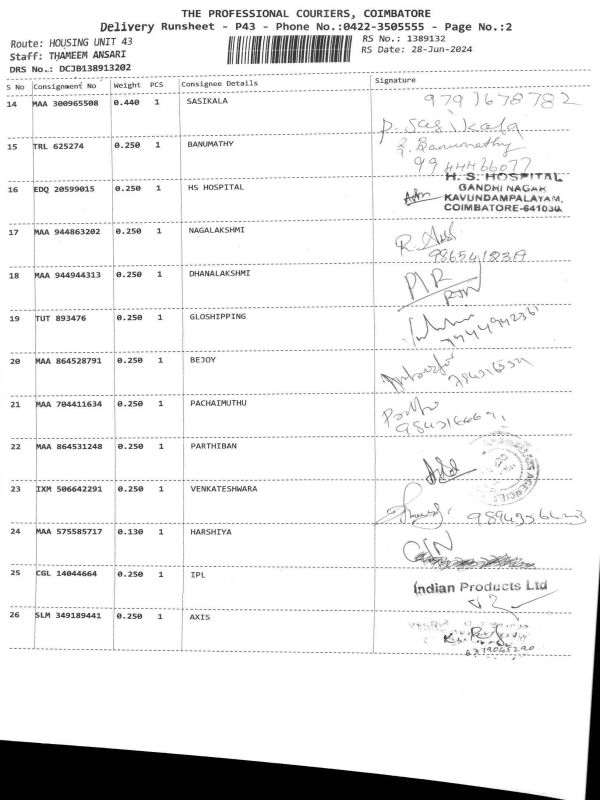 THE PROFESSIONAL COURIERS, COIMBATORE
Delivery Runsheet - P43 - Phone No.:0422-3505555 - Page No.:2
Route: HOUSING UNIT 43
RS No.: 1389132
Staff: THAMEEM ANSARI
RS Date: 28-Jun-2024
DRS No.: DCJB138913202
S No Consignment No Weight PCS Consignee Details Signature
14 MAA 300965508 0.440 1 SASIKALA 9791678782
P. Sasikala
15 TRL 625274 0.250 1 BANUMATHY Banumathy
9944466077
16 EDQ 20599015 0.250 1 HS HOSPITAL H. S. HOSPITAL
GANDHI NAGAR
KAVUNDAMPALAYAM,
COIMBATORE-641030.
17 MAA 944863202 0.250 1 NAGALAKSHMI
18 MAA 944944313 0.250 1 DHANALAKSHMI
19 TUT 893476 0.250 1 GLOSHIPPING
20 MAA 864528791 0.250 1 BEJOY
21 MAA 704411634 0.250 1 PACHAIMUTHU
22 MAA 864531248 0.250 1 PARTHIBAN
23 IXM 506642291 0.250 1 VENKATESHWARA
24 MAA 575585717 0.130 1 HARSHIYA
25 CGL 14044664 0.250 1 IPL Indian Products Ltd
26 SLM 349189441 0.250 1 AXIS